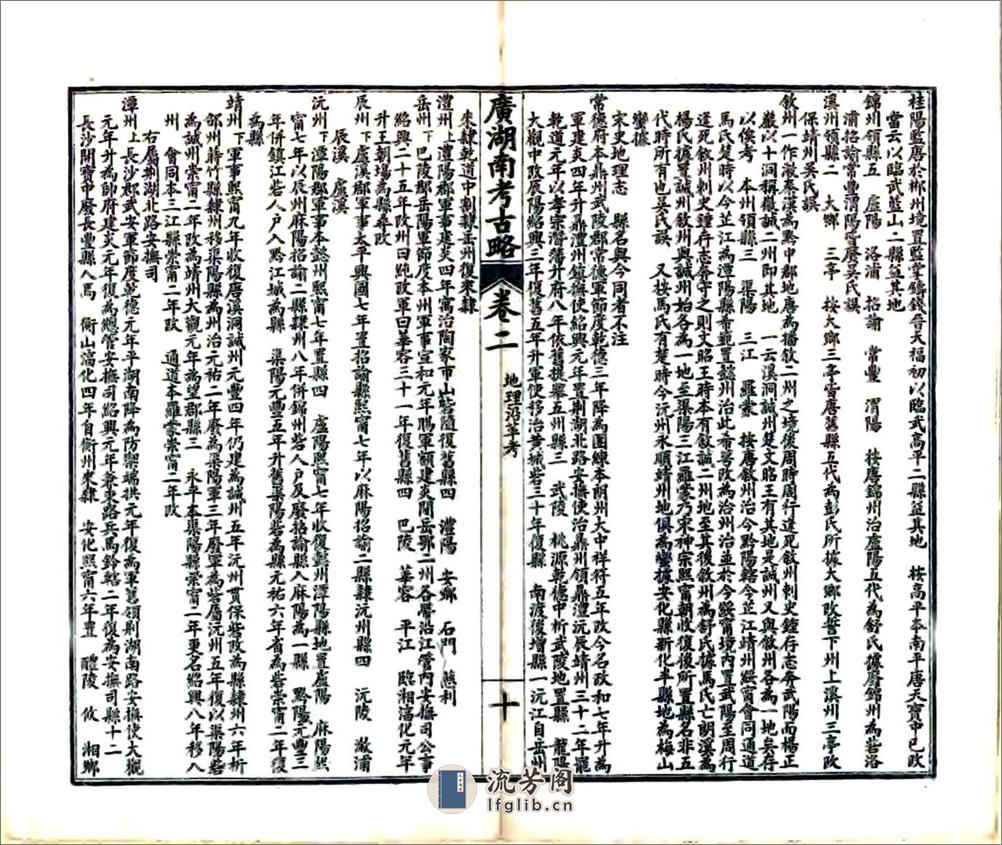 桂陽監唐於郴州境置監堂鑄錢晉天福初以臨武高平二縣益其地 按高平本南平唐天寶中已改
當云以臨武藍山二縣益其地
錦州領縣五 盧陽 洛浦 招諭 常豐 渭陽 按唐錦州治盧陽五代為舒氏據廢錦州為砦洛
浦招諭常豐渭陽皆廢吳氏誤
溪州領縣二 大鄉 三亭 按大鄉三亭皆唐舊縣五代為彭氏所據大鄉改誓下州上溪州三亭改
保靖州吳氏誤
敘州一作漵秦漢為黔中郡地唐為播敘二州之境後周時周行逢死敘州刺史鍾存志奔武陽而楊正
巖以十洞稱徽誠二州即其地 一云溪洞誠州楚文昭王有其地是誠州又與敘州各為一地矣存
以俟考 本州領縣三 渠陽 三江 羅蒙 按唐敘州治今黔陽轄今芷江靖州綏甯會同通道
馬氏楚時以今芷江為潭陽縣者範置懿州治此
逢死敘州刺史鍾存志奔守之則文昭王時本有敘誠二州地至其後敘州為舒氏據馬氏亡朗溪為
楊氏據置誠州敘州與誠州始各為一地至渠陽三江羅蒙乃宋神宗熙甯朝收復後所置縣名非五
代時所有也吳氏誤 又按馬氏有楚時今沅州永順靖州地俱為蠻據安化縣新化半縣地為梅山
蠻據
宋史地理志 縣名與今同者不注
常德府本鼎州武陵郡常德軍節度乾德三年降為團練本朗州大中祥符五年改今名政和七年升為
軍建炎四年升鼎澧州鎮撫使紹興元年置荊湖北路安撫使治鼎州領鼎澧沅辰靖州三十二年罷
乾道元年以孝宗潛藩升府八年依舊提舉五州縣三 武陵 桃源乾德中析武陵地置縣 龍陽
大觀中改辰陽紹興三年復舊五年升軍使移治黃城砦三十年復縣 南渡復增縣一沅江自岳州
來隸乾道中割隸岳州復來隸
澧州上澧陽郡軍事建炎四年寓治陶家市山砦隨復舊縣四 澧陽 安鄉 石門 慈利
岳州下巴陵郡岳陽軍節度本州軍事宣和元年賜軍額建炎間岳鄂二州各帶沿江管內安撫司公事
紹興二十五年改州曰純改軍曰華容三十一年復舊縣四 巴陵 華容 平江 臨湘淳化元年
升王朝場為縣尋改
辰州下盧溪郡軍事太平興國七年置招諭縣熙甯七年以麻陽招諭二縣隸沅州縣四 沅陵 漵浦
辰溪 盧溪
沅州下潭陽郡軍事本懿州熙甯七年置縣四 盧陽熙甯七年收復懿州潭陽縣地置盧陽 麻陽熙
甯七年以辰州麻陽招諭二縣隸州八年併錦州砦人戶及廢招諭縣入麻陽為一縣 黔陽元豐三
年併鎮江砦人戶入黔江城為縣 渠陽元豐五年升舊渠陽砦為縣元祐六年省為砦崇甯二年復
為縣
靖州下軍事熙甯九年收復唐溪洞誠州元豐四年仍建為誠州五年沅州貫保砦改為縣隸州六年析
邵州蒔竹縣隸州移渠陽縣為州治元祐二年廢為渠陽軍三年廢軍為砦屬沅州五年復以渠陽砦
為誠州崇甯二年改為靖州大觀元年為望郡縣三 永平本渠陽縣崇甯二年更名紹興八年移入
州 會同本三江縣崇甯二年改 通道本羅蒙崇甯二年改
右屬荊湖北路安撫司
潭州上長沙郡武安軍節度乾德元年平湖南降為防禦端拱元年復為軍舊領荊湖南路安撫使大觀
元年升為帥府建炎元年復為總管安撫司紹興元年兼東路兵馬鈐轄二年復為安撫司縣十二
長沙開寶中廢長豐縣入焉 衡山淳化四年自衡州來隸 安化熙甯六年置 醴陵 攸 湘鄉
廣湖南考古略
卷二
地理沿革考
十
流芳阁
lfglib.cn